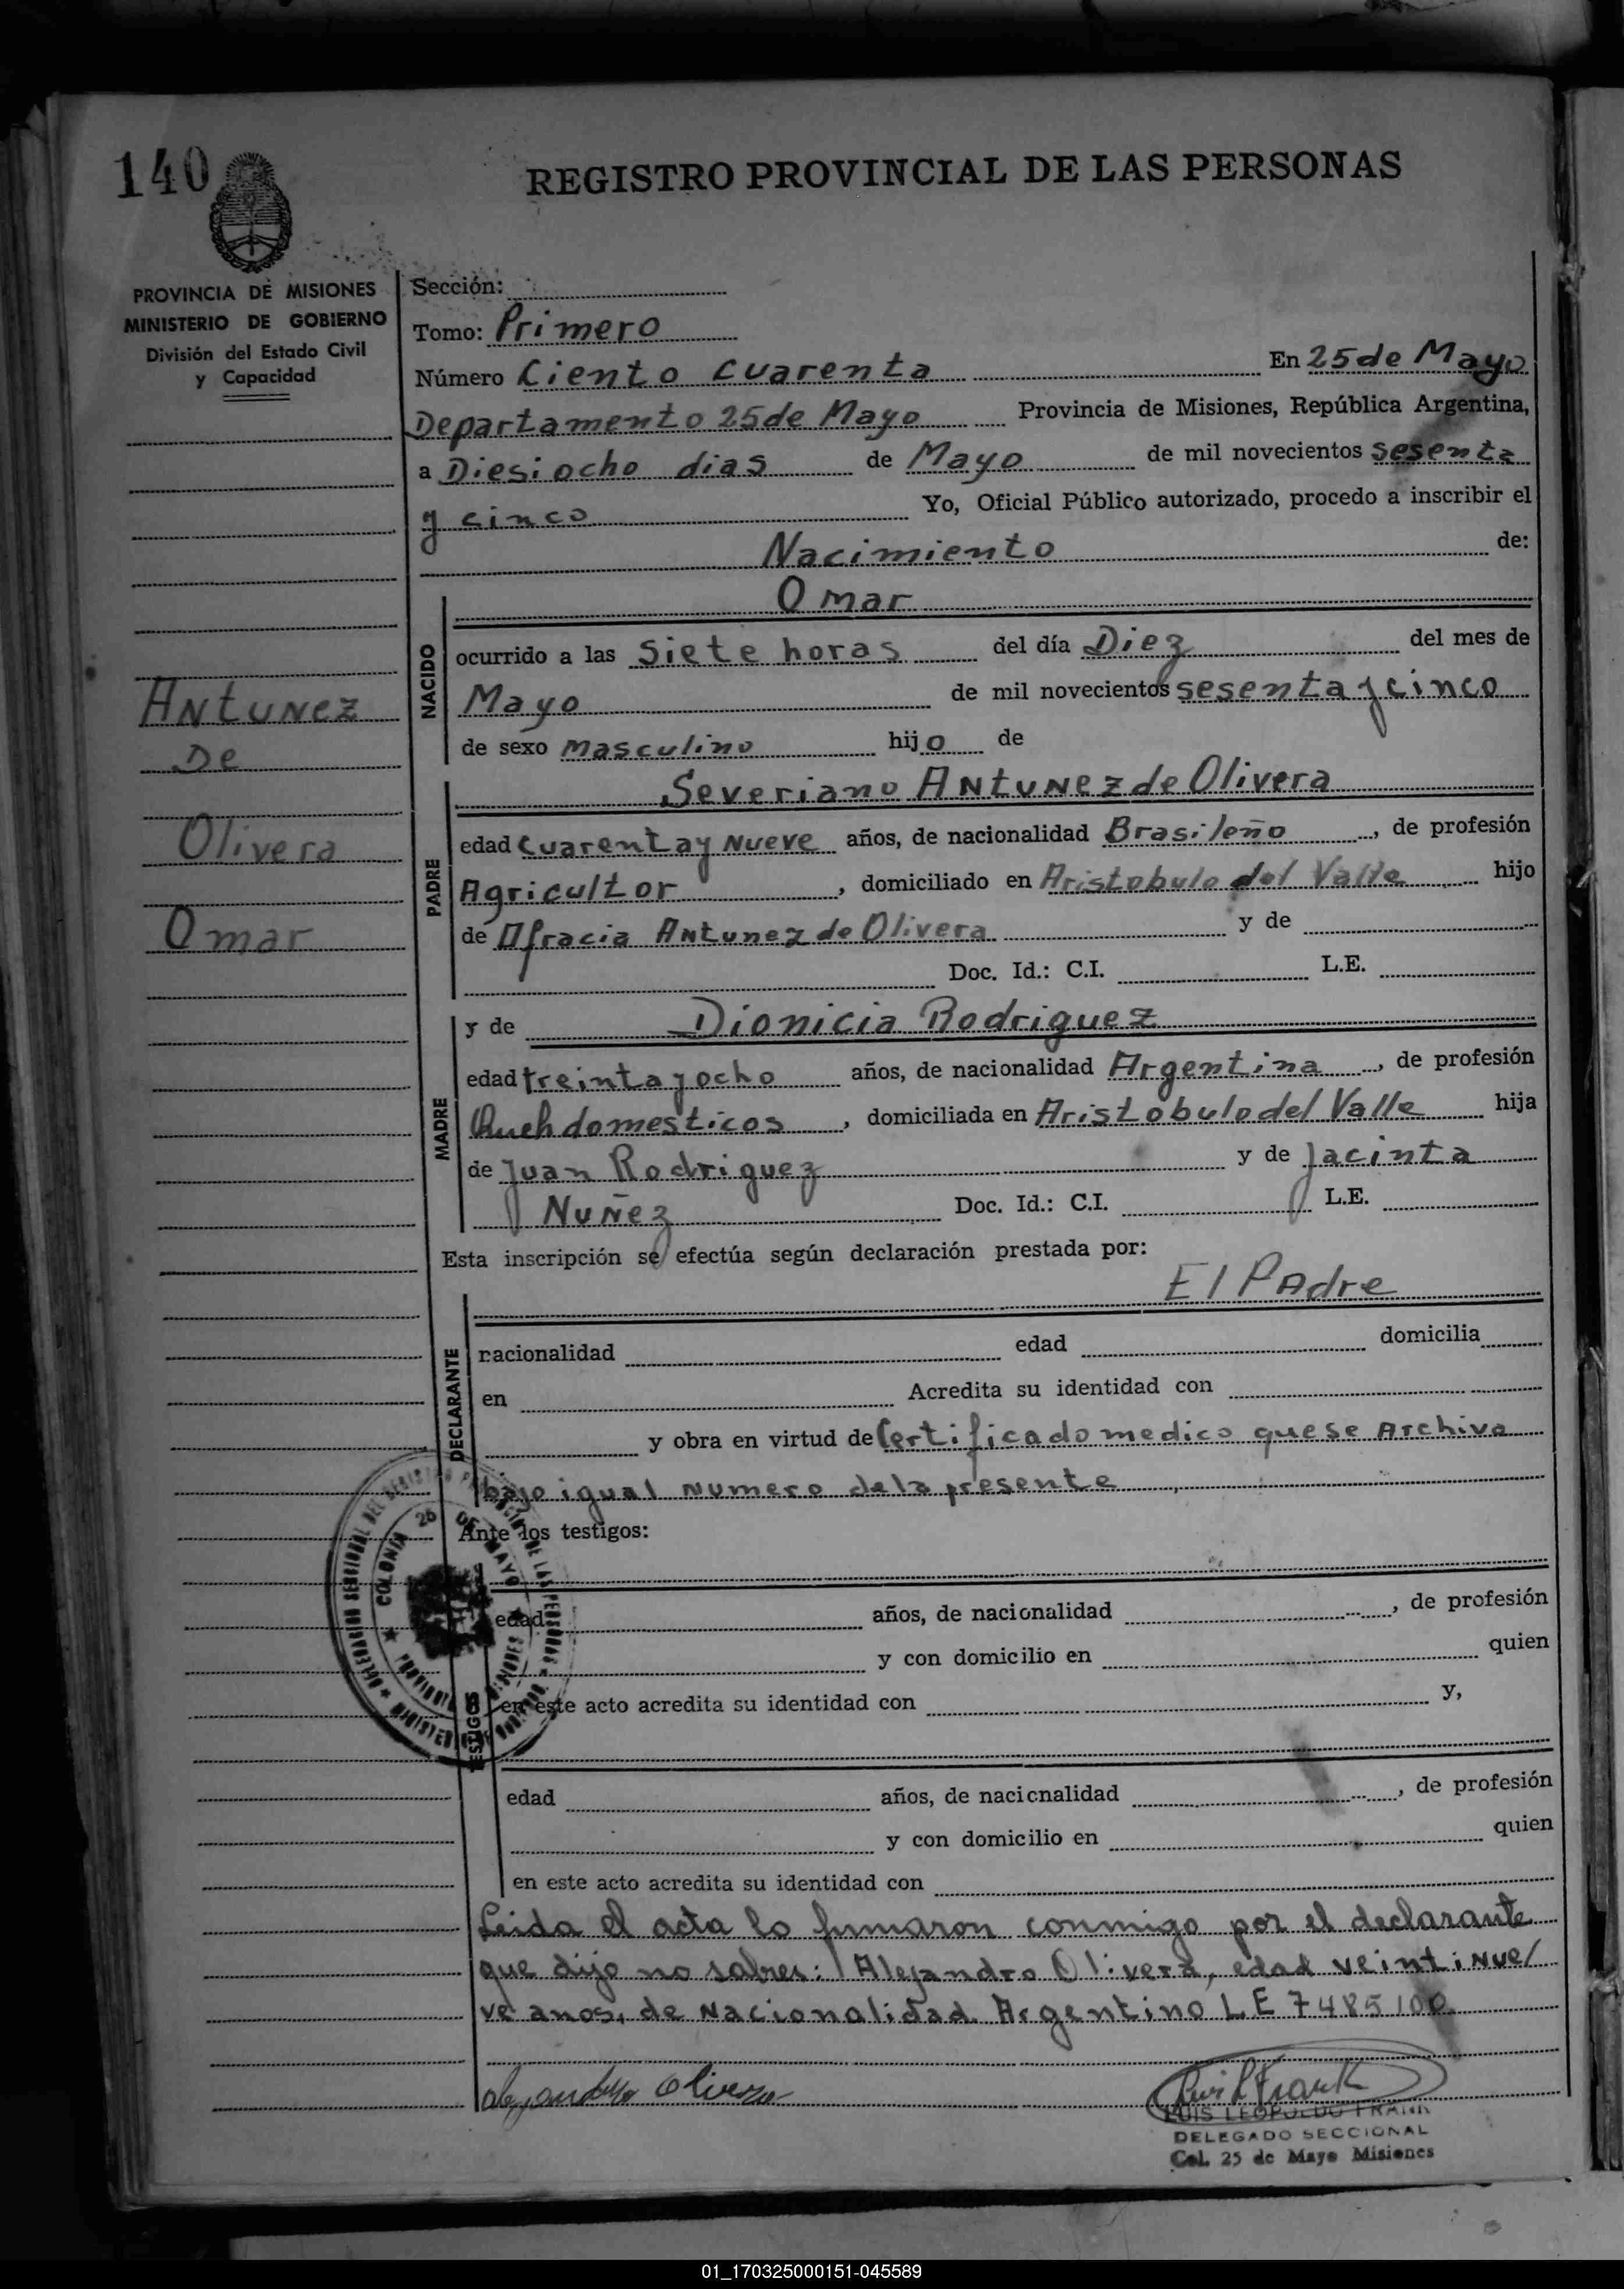 140
REGISTRO PROVINCIAL DE LAS PERSONAS
PROVINCIA DE MISIONES
MINISTERIO DE GOBIERNO
División del Estado Civil
y Capacidad
Sección:
Tomo: Primero
Número Ciento Cuarenta En 25 de Mayo
Departamento 25 de Mayo Provincia de Misiones, República Argentina,
a Diesiocho dias de Mayo de mil novecientos sesenta
y cinco Yo, Oficial Público autorizado, procedo a inscribir el
Nacimiento de:
Omar
NACIDO
ocurrido a las Siete horas del día Diez del mes de
Mayo de mil novecientos sesenta y cinco
de sexo masculino hijo de
Antunez
De
Olivera
Omar
Severiano Antunez de Olivera
PADRE
edad cuarenta y Nueve años, de nacionalidad Brasileño, de profesión
Agricultor, domiciliado en Aristobulo del Valle hijo
de Afracia Antunez de Olivera y de
Doc. Id.: C.I. L.E.
y de Dionicia Rodriguez
MADRE
edad treinta y ocho años, de nacionalidad Argentina, de profesión
domesticos, domiciliada en Aristobulo del Valle hija
de Juan Rodriguez y de Jacinta
Nuñez Doc. Id.: C.I. L.E.
Esta inscripción se efectúa según declaración prestada por:
El Padre
DECLARANTE
nacionalidad edad domicilia
en Acredita su identidad con
y obra en virtud de Certificado medico que se Archiva
bajo igual numero de la presente
Ante los testigos:
COLONIA 25 DE MAYO
TESTIGOS
edad años, de nacionalidad, de profesión
y con domicilio en quien
en este acto acredita su identidad con y,
edad años, de nacionalidad, de profesión
y con domicilio en quien
en este acto acredita su identidad con
Leida el acta lo firmaron conmigo por el declarante
que dijo no saber: Alejandro Olivera, edad veintinue/
ve anos, de Nacionalidad Argentino L E 7485100
Alejandro Olivera
Luis L Frank
LUIS LEOPOLDO FRANK
DELEGADO SECCIONAL
Col. 25 de Mayo Misiones
01_170325000151-045589